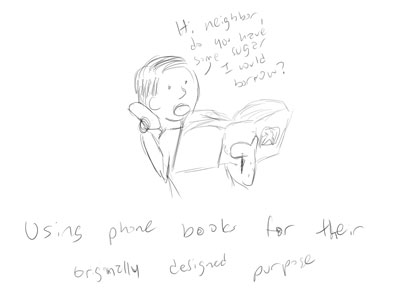 Hi neighbor,
do you have
some sugar
I would
borrow?
Using phone books for their
orginally designed purpose